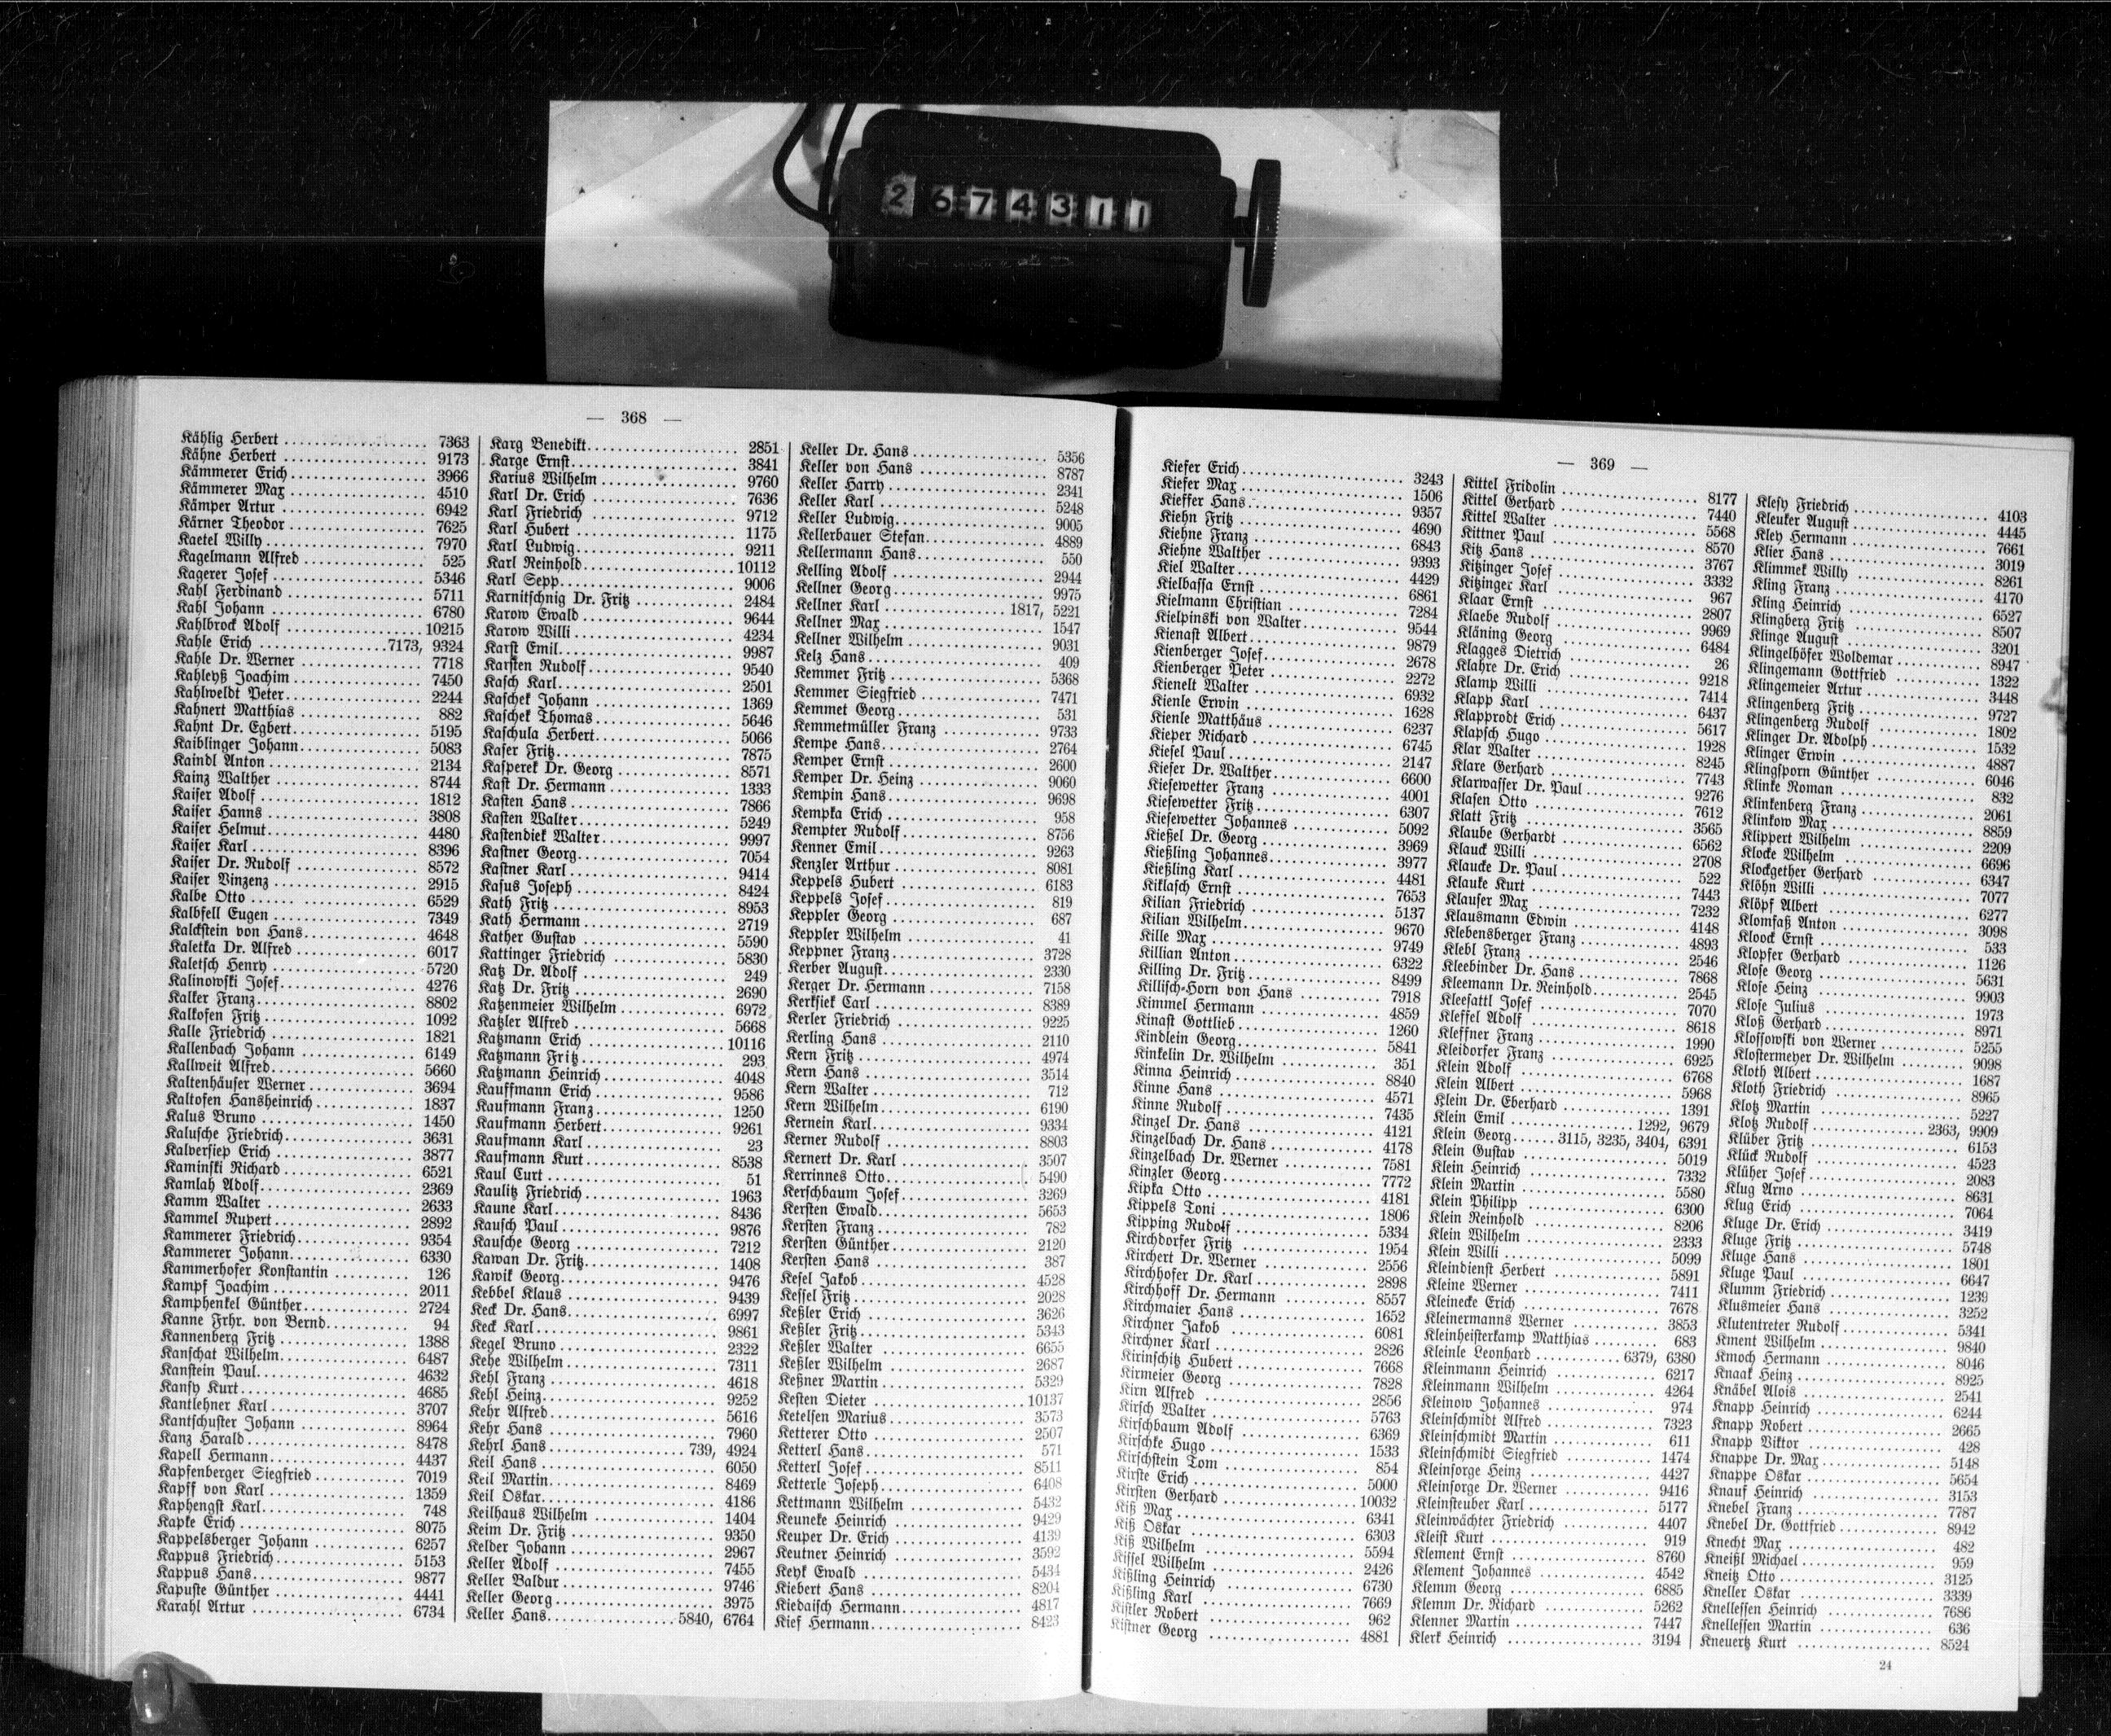 2674311
— 368 —
Kählig Herbert ........ 7363
Kähne Herbert ........ 9173
Kämmerer Erich ........ 3966
Kämmerer Max ........ 4510
Kämper Artur ........ 6942
Kärner Theodor ........ 7625
Kaetel Willy ........ 7970
Kagelmann Alfred ........ 525
Kagerer Josef ........ 5346
Kahl Ferdinand ........ 5711
Kahl Johann ........ 6780
Kahlbrock Adolf ........ 10215
Kahle Erich ........ 7173, 9324
Kahle Dr. Werner ........ 7718
Kahleyß Joachim ........ 7450
Kahlweldt Peter ........ 2244
Kahnert Matthias ........ 882
Kahnt Dr. Egbert ........ 5195
Kaiblinger Johann ........ 5083
Kaindl Anton ........ 2134
Kainz Walther ........ 8744
Kaiser Adolf ........ 1812
Kaiser Hanns ........ 3808
Kaiser Helmut ........ 4480
Kaiser Karl ........ 8396
Kaiser Dr. Rudolf ........ 8572
Kaiser Vinzenz ........ 2915
Kalbe Otto ........ 6529
Kalbfell Eugen ........ 7349
Kalckstein von Hans ........ 4648
Kaletka Dr. Alfred ........ 6017
Kaletsch Henry ........ 5720
Kalinowski Josef ........ 4276
Kalker Franz ........ 8802
Kalkofen Fritz ........ 1092
Kalle Friedrich ........ 1821
Kallenbach Johann ........ 6149
Kallweit Alfred ........ 5660
Kaltenhäuser Werner ........ 3694
Kaltofen Hansheinrich ........ 1837
Kalus Bruno ........ 1450
Kalusche Friedrich ........ 3631
Kalversiep Erich ........ 3877
Kaminski Richard ........ 6521
Kamlah Adolf ........ 2369
Kamm Walter ........ 2633
Kammel Rupert ........ 2892
Kammerer Friedrich ........ 9354
Kammerer Johann ........ 6330
Kammerhofer Konstantin ........ 126
Kampf Joachim ........ 2011
Kamphenkel Günther ........ 2724
Kanne Frhr. von Bernd ........ 94
Kannenberg Fritz ........ 1388
Kanschat Wilhelm ........ 6487
Kanstein Paul ........ 4632
Kansy Kurt ........ 4685
Kantlehner Karl ........ 3707
Kantschuster Johann ........ 8964
Kanz Harald ........ 8478
Kapell Hermann ........ 4437
Kapfenberger Siegfried ........ 7019
Kapff von Karl ........ 1359
Kaphengst Karl ........ 748
Kapke Erich ........ 8075
Kappelsberger Johann ........ 6257
Kappus Friedrich ........ 5153
Kappus Hans ........ 9877
Kapuste Günther ........ 4441
Karahl Artur ........ 6734
Karg Benedikt ........ 2851
Karge Ernst ........ 3841
Karius Wilhelm ........ 9760
Karl Dr. Erich ........ 7636
Karl Friedrich ........ 9712
Karl Hubert ........ 1175
Karl Ludwig ........ 9211
Karl Reinhold ........ 10112
Karl Sepp ........ 9006
Karnitschnig Dr. Fritz ........ 2484
Karow Ewald ........ 9644
Karow Willi ........ 4234
Karst Emil ........ 9987
Karsten Rudolf ........ 9540
Kasch Karl ........ 2501
Kaschek Johann ........ 1369
Kaschek Thomas ........ 5646
Kaschula Herbert ........ 5066
Kaser Fritz ........ 7875
Kasperek Dr. Georg ........ 8571
Kast Dr. Hermann ........ 1333
Kasten Hans ........ 7866
Kasten Walter ........ 5249
Kastendiek Walter ........ 9997
Kastner Georg ........ 7054
Kastner Karl ........ 9414
Kasus Joseph ........ 8424
Kath Fritz ........ 8953
Kath Hermann ........ 2719
Kather Gustav ........ 5590
Kattinger Friedrich ........ 5830
Katz Dr. Adolf ........ 249
Katz Dr. Fritz ........ 2690
Katzenmeier Wilhelm ........ 6972
Katzler Alfred ........ 5668
Katzmann Erich ........ 10116
Katzmann Fritz ........ 293
Katzmann Heinrich ........ 4048
Kauffmann Erich ........ 9586
Kaufmann Franz ........ 1250
Kaufmann Herbert ........ 9261
Kaufmann Karl ........ 23
Kaufmann Kurt ........ 8538
Kaul Curt ........ 51
Kaulitz Friedrich ........ 1963
Kaune Karl ........ 8436
Kausch Paul ........ 9876
Kausche Georg ........ 7212
Kawan Dr. Fritz ........ 1408
Kawik Georg ........ 9476
Kebbel Klaus ........ 9439
Keck Dr. Hans ........ 6997
Keck Karl ........ 9861
Kegel Bruno ........ 2322
Kehe Wilhelm ........ 7311
Kehl Franz ........ 4618
Kehl Heinz ........ 9252
Kehr Alfred ........ 5616
Kehr Hans ........ 7960
Kehrl Hans ........ 739, 4924
Keil Hans ........ 6050
Keil Martin ........ 8469
Keil Oskar ........ 4186
Keilhaus Wilhelm ........ 1404
Keim Dr. Fritz ........ 9350
Kelder Johann ........ 2967
Keller Adolf ........ 7455
Keller Baldur ........ 9746
Keller Georg ........ 3975
Keller Hans ........ 5840, 6764
Keller Dr. Hans ........ 5356
Keller von Hans ........ 8787
Keller Harry ........ 2341
Keller Karl ........ 5248
Keller Ludwig ........ 9005
Kellerbauer Stefan ........ 4889
Kellermann Hans ........ 550
Kelling Adolf ........ 2944
Kellner Georg ........ 9975
Kellner Karl ........ 1817, 5221
Kellner Max ........ 1547
Kellner Wilhelm ........ 9031
Kelz Hans ........ 409
Kemmer Fritz ........ 5368
Kemmer Siegfried ........ 7471
Kemmet Georg ........ 531
Kemmetmüller Franz ........ 9733
Kempe Hans ........ 2764
Kemper Ernst ........ 2600
Kemper Dr. Heinz ........ 9060
Kempin Hans ........ 9698
Kempka Erich ........ 958
Kempter Rudolf ........ 8756
Kenner Emil ........ 9263
Kenzler Arthur ........ 8081
Keppels Hubert ........ 6183
Keppels Josef ........ 819
Keppler Georg ........ 687
Keppler Wilhelm ........ 41
Keppner Franz ........ 3728
Kerber August ........ 2330
Kerger Dr. Hermann ........ 7158
Kerksiek Carl ........ 8389
Kerler Friedrich ........ 9225
Kerling Hans ........ 2110
Kern Fritz ........ 4974
Kern Hans ........ 3514
Kern Walter ........ 712
Kern Wilhelm ........ 6190
Kernein Karl ........ 9334
Kerner Rudolf ........ 8803
Kernert Dr. Karl ........ 3507
Kerrinnes Otto ........ 5490
Kerschbaum Josef ........ 3269
Kersten Ewald ........ 5653
Kersten Franz ........ 782
Kersten Günther ........ 2120
Kersten Hans ........ 387
Kesel Jakob ........ 4528
Kessel Fritz ........ 2028
Keßler Erich ........ 3626
Keßler Fritz ........ 5343
Keßler Walter ........ 6655
Keßler Wilhelm ........ 2687
Keßner Martin ........ 5329
Kesten Dieter ........ 10137
Ketelsen Marius ........ 3573
Ketterer Otto ........ 2507
Ketterl Hans ........ 571
Ketterl Josef ........ 8511
Ketterle Joseph ........ 6408
Kettmann Wilhelm ........ 5432
Keuneke Heinrich ........ 9429
Keuper Dr. Erich ........ 4139
Keutner Heinrich ........ 3592
Keyk Ewald ........ 5434
Kiebert Hans ........ 8204
Kiedaisch Hermann ........ 4817
Kief Hermann ........ 8423
— 369 —
Kiefer Erich ........ 3243
Kiefer Max ........ 1506
Kieffer Hans ........ 9357
Kiehn Fritz ........ 4690
Kiehne Franz ........ 6843
Kiehne Walther ........ 9393
Kiel Walter ........ 4429
Kielbassa Ernst ........ 6861
Kielmann Christian ........ 7284
Kielpinski von Walter ........ 9544
Kienast Albert ........ 9879
Kienberger Josef ........ 2678
Kienberger Peter ........ 2272
Kienelt Walter ........ 6932
Kienle Erwin ........ 1628
Kienle Matthäus ........ 6237
Kieper Richard ........ 6745
Kiesel Paul ........ 2147
Kieser Dr. Walther ........ 6600
Kiesewetter Franz ........ 4001
Kiesewetter Fritz ........ 6307
Kiesewetter Johannes ........ 5092
Kießel Dr. Georg ........ 3969
Kießling Johannes ........ 3977
Kießling Karl ........ 4481
Kiklasch Ernst ........ 7653
Kilian Friedrich ........ 5137
Kilian Wilhelm ........ 9670
Kille Max ........ 9749
Killian Anton ........ 6322
Killing Dr. Fritz ........ 8499
Killisch-Horn von Hans ........ 7918
Kimmel Hermann ........ 4859
Kinast Gottlieb ........ 1260
Kindlein Georg ........ 5841
Kinkelin Dr. Wilhelm ........ 351
Kinna Heinrich ........ 8840
Kinne Hans ........ 4571
Kinne Rudolf ........ 7435
Kinzel Dr. Hans ........ 4121
Kinzelbach Dr. Hans ........ 4178
Kinzelbach Dr. Werner ........ 7581
Kinzler Georg ........ 7772
Kipka Otto ........ 4181
Kippels Toni ........ 1806
Kipping Rudolf ........ 5334
Kirchdorfer Fritz ........ 1954
Kirchert Dr. Werner ........ 2556
Kirchhofer Dr. Karl ........ 2898
Kirchhoff Dr. Hermann ........ 8557
Kirchmaier Hans ........ 1652
Kirchner Jakob ........ 6081
Kirchner Karl ........ 2826
Kirinschitz Hubert ........ 7668
Kirmeier Georg ........ 7828
Kirn Alfred ........ 2856
Kirsch Walter ........ 5763
Kirschbaum Adolf ........ 6369
Kirschke Hugo ........ 1533
Kirschstein Tom ........ 854
Kirste Erich ........ 5000
Kirsten Gerhard ........ 10032
Kiß Max ........ 6341
Kiß Oskar ........ 6303
Kiß Wilhelm ........ 5594
Kissel Wilhelm ........ 2426
Kißling Heinrich ........ 6730
Kißling Karl ........ 7669
Kistler Robert ........ 962
Kistner Georg ........ 4881
Kittel Fridolin ........ 8177
Kittel Gerhard ........ 7440
Kittel Walter ........ 5568
Kittner Paul ........ 8570
Kitz Hans ........ 3767
Kitzinger Josef ........ 3332
Kitzinger Karl ........ 967
Klaar Ernst ........ 2807
Klaebe Rudolf ........ 9969
Kläning Georg ........ 6484
Klagges Dietrich ........ 26
Klahre Dr. Erich ........ 9218
Klamp Willi ........ 7414
Klapp Karl ........ 6437
Klapprodt Erich ........ 5617
Klapsch Hugo ........ 1928
Klar Walter ........ 8245
Klare Gerhard ........ 7743
Klarwasser Dr. Paul ........ 9276
Klasen Otto ........ 7612
Klatt Fritz ........ 3565
Klaube Gerhardt ........ 6562
Klauck Willi ........ 2708
Klaucke Dr. Paul ........ 522
Klauke Kurt ........ 7443
Klauser Max ........ 7232
Klausmann Edwin ........ 4148
Klebensberger Franz ........ 4893
Klebl Franz ........ 2546
Kleebinder Dr. Hans ........ 7868
Kleemann Dr. Reinhold ........ 2545
Kleesattl Josef ........ 7070
Kleffel Adolf ........ 8618
Kleffner Franz ........ 1990
Kleidorfer Franz ........ 6925
Klein Adolf ........ 6768
Klein Albert ........ 5968
Klein Dr. Eberhard ........ 1391
Klein Emil ........ 1292, 9679
Klein Georg ...... 3115, 3235, 3404, 6391
Klein Gustav ........ 5019
Klein Heinrich ........ 7332
Klein Martin ........ 5580
Klein Philipp ........ 6300
Klein Reinhold ........ 8206
Klein Wilhelm ........ 2333
Klein Willi ........ 5099
Kleindienst Herbert ........ 5891
Kleine Werner ........ 7411
Kleinecke Erich ........ 7678
Kleinermanns Werner ........ 3853
Kleinheisterkamp Matthias ........ 683
Kleinle Leonhard ........ 6379, 6380
Kleinmann Heinrich ........ 6217
Kleinmann Wilhelm ........ 4264
Kleinow Johannes ........ 974
Kleinschmidt Alfred ........ 7323
Kleinschmidt Martin ........ 611
Kleinschmidt Siegfried ........ 1474
Kleinsorge Heinz ........ 4427
Kleinsorge Dr. Werner ........ 9416
Kleinsteuber Karl ........ 5177
Kleinwächter Friedrich ........ 4407
Kleist Kurt ........ 919
Klement Ernst ........ 8760
Klement Johannes ........ 4542
Klemm Georg ........ 6885
Klemm Dr. Richard ........ 5262
Klenner Martin ........ 7447
Klerk Heinrich ........ 3194
Klesy Friedrich ........ 4103
Kleuker August ........ 4445
Kley Hermann ........ 7661
Klier Hans ........ 3019
Klimmek Willy ........ 8261
Kling Franz ........ 4170
Kling Heinrich ........ 6527
Klingberg Fritz ........ 8507
Klinge August ........ 3201
Klingelhöfer Woldemar ........ 8947
Klingemann Gottfried ........ 1322
Klingemeier Artur ........ 3448
Klingenberg Fritz ........ 9727
Klingenberg Rudolf ........ 1802
Klinger Dr. Adolph ........ 1532
Klinger Erwin ........ 4887
Klingsporn Günther ........ 6046
Klinke Roman ........ 832
Klinkenberg Franz ........ 2061
Klinkow Max ........ 8859
Klippert Wilhelm ........ 2209
Klocke Wilhelm ........ 6696
Klockgether Gerhard ........ 6347
Klöhn Willi ........ 7077
Klöpf Albert ........ 6277
Klomfaß Anton ........ 3098
Kloock Ernst ........ 533
Klopfer Gerhard ........ 1126
Klose Georg ........ 5631
Klose Heinz ........ 9903
Klose Julius ........ 1973
Kloß Gerhard ........ 8971
Klossowski von Werner ........ 5255
Klostermeyer Dr. Wilhelm ........ 9098
Kloth Albert ........ 1687
Kloth Friedrich ........ 8965
Klotz Martin ........ 5227
Klotz Rudolf ........ 2363, 9909
Klüber Fritz ........ 6153
Klück Rudolf ........ 4523
Klüher Josef ........ 2083
Klug Arno ........ 8631
Klug Erich ........ 7064
Kluge Dr. Erich ........ 3419
Kluge Fritz ........ 5748
Kluge Hans ........ 1801
Kluge Paul ........ 6647
Klumm Friedrich ........ 1239
Klusmeier Hans ........ 3252
Klutentreter Rudolf ........ 5341
Kment Wilhelm ........ 9840
Kmoch Hermann ........ 8046
Knaak Heinz ........ 8925
Knäbel Alois ........ 2541
Knapp Heinrich ........ 6244
Knapp Robert ........ 2665
Knapp Viktor ........ 428
Knappe Dr. Max ........ 5148
Knappe Oskar ........ 5654
Knauf Heinrich ........ 3153
Knebel Franz ........ 7787
Knebel Dr. Gottfried ........ 8942
Knecht Max ........ 482
Kneißl Michael ........ 959
Kneitz Otto ........ 3125
Kneller Oskar ........ 3339
Knellessen Heinrich ........ 7686
Knellessen Martin ........ 636
Kneuertz Kurt ........ 8524
24